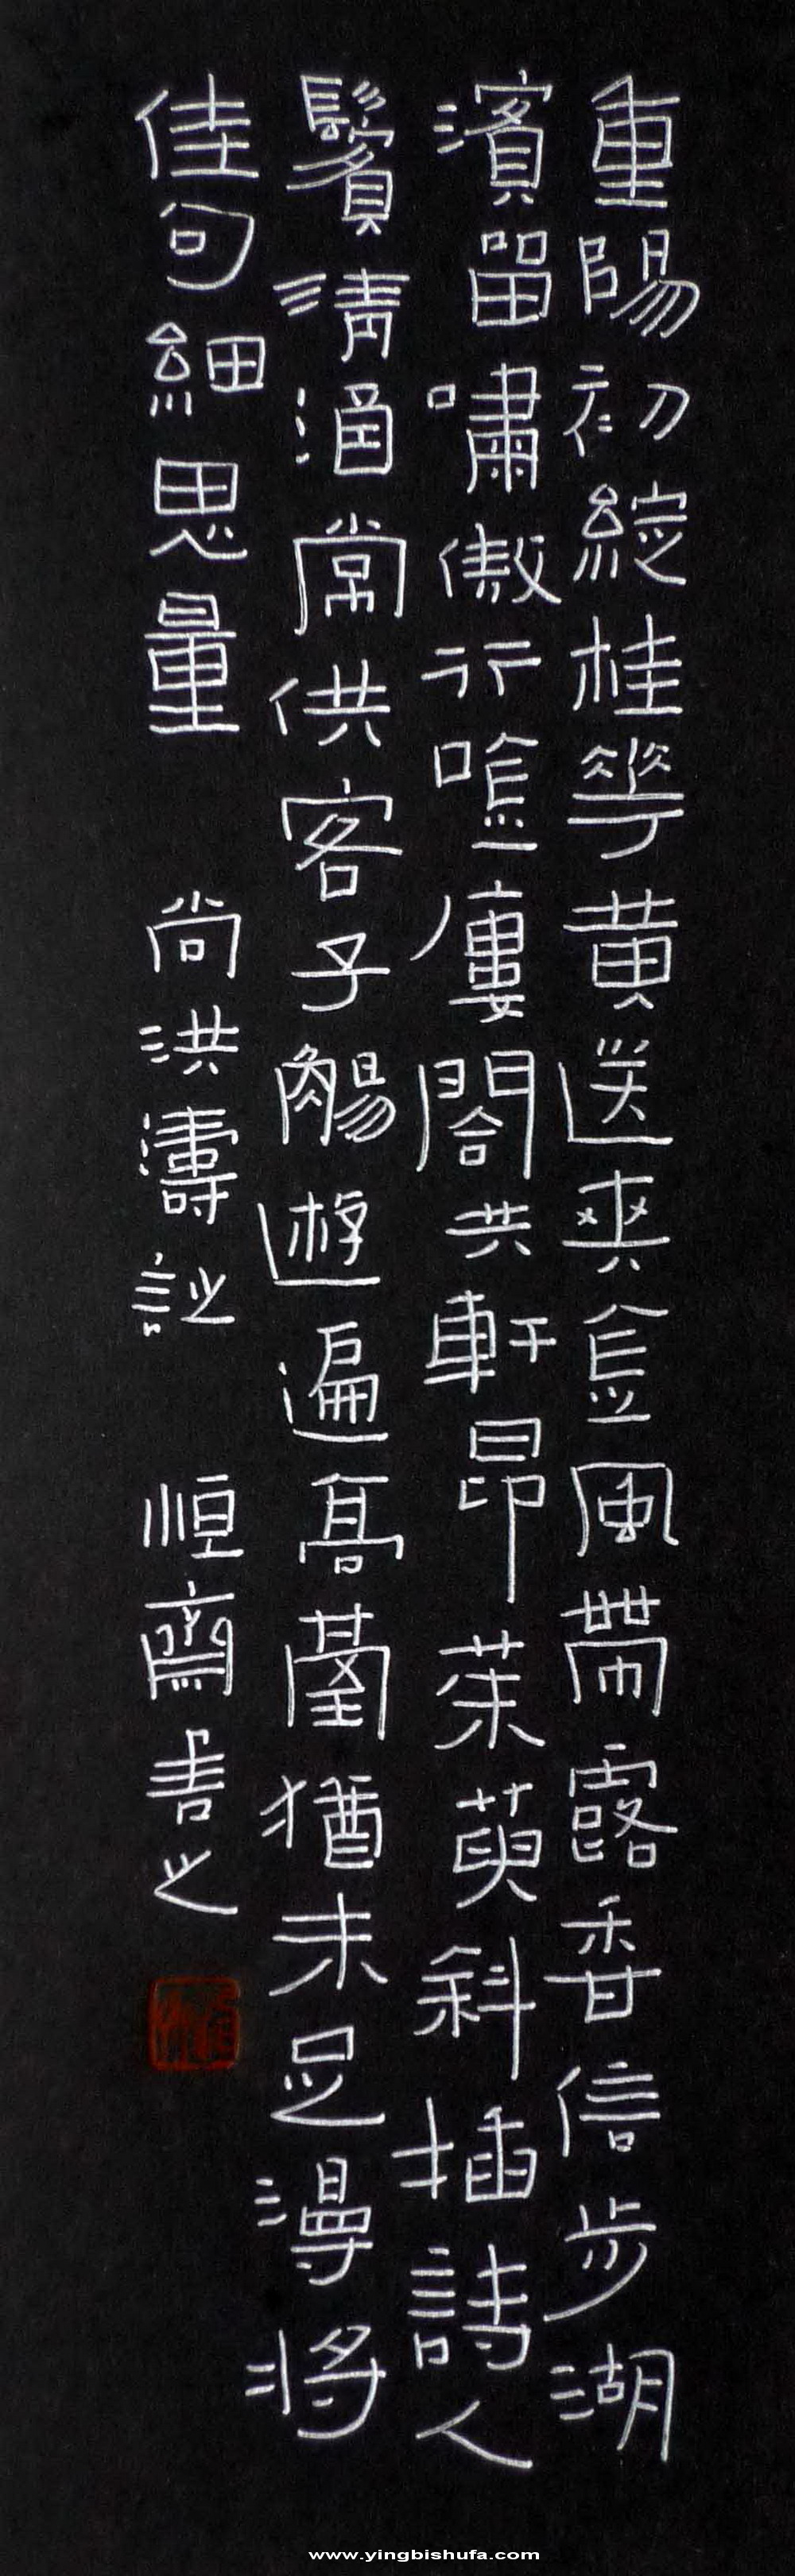 重陽初綻桂華黃送爽金風帶露香信步湖
濱留嘯傲行吟廔閣共軒昂茱萸斜插詩人
鬢清酒常供客子觴遊遍高臺猶未足漫將
佳句細思量 尚洪濤詩 恒齋書之
www.yingbishufa.com